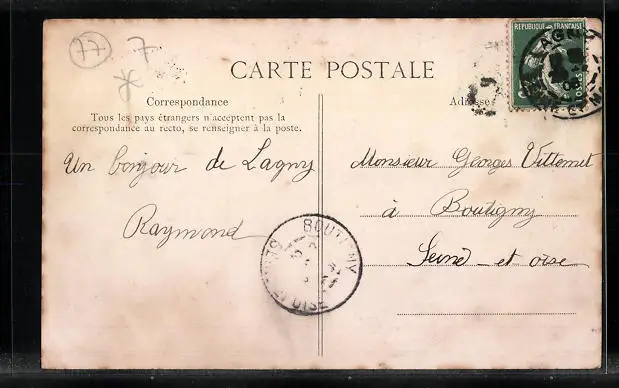 77 7
CARTE POSTALE
Correspondance
Tous les pays étrangers n'acceptent pas la
correspondance au recto, se renseigner à la poste.
Un bonjour de Lagny
Raymond
Adresse
Monsieur Georges Vittemet
à Boutigny
Seine et oise
REPUBLIQUE FRANÇAISE
POSTES
LAGNY
BOUTIGNY
SEINE ET OISE